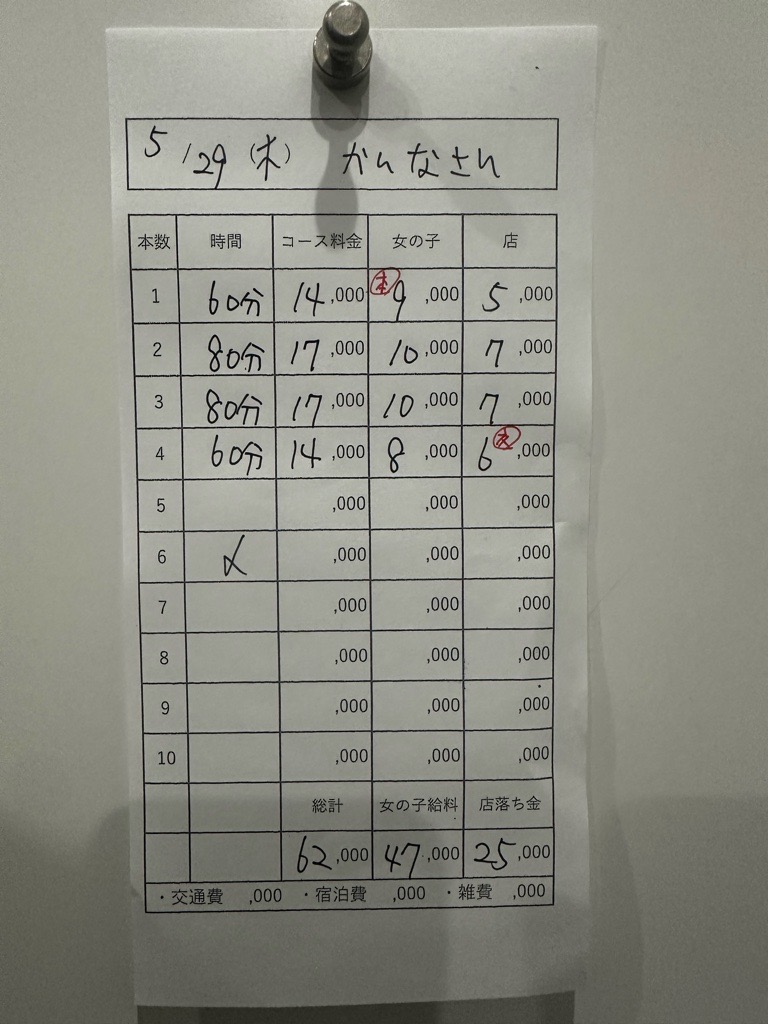 5/29 (木) かんなさん
本数 時間 コース料金 女の子 店
1 60分 14,000 本 9,000 5,000
2 80分 17,000 10,000 7,000
3 80分 17,000 10,000 7,000
4 60分 14,000 8,000 6,000
5 ,000 ,000 ,000
6 〆 ,000 ,000 ,000
7 ,000 ,000 ,000
8 ,000 ,000 ,000
9 ,000 ,000 ,000
10 ,000 ,000 ,000
総計 女の子給料 店落ち金
62,000 47,000 25,000
・交通費 ,000 ・宿泊費 ,000 ・雑費 ,000